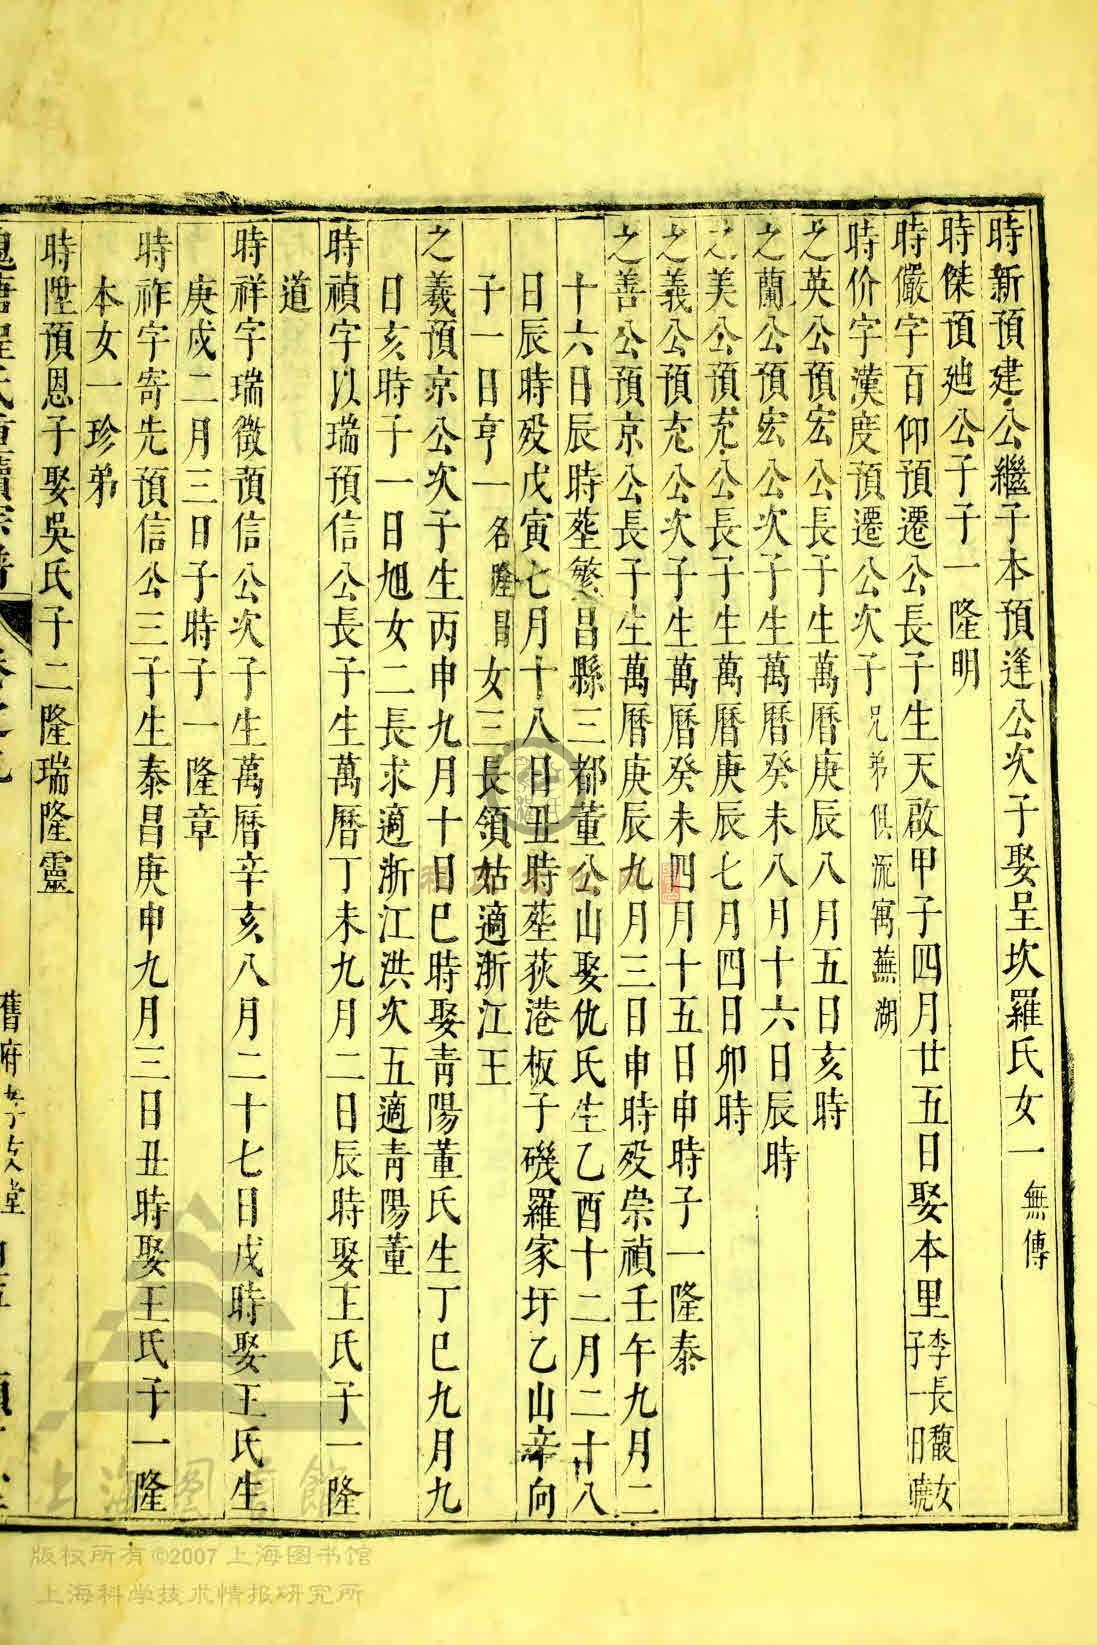 時新預建公繼子本預逢公次子娶呈坎羅氏女一無傳
時傑預逊公子子一隆明
時儼字百仰預遷公長子生天啟甲子四月廿五日娶本里李長馥女子一日曉
時价字漢度預遷公次子兄弟俱流寓蕪湖
之英公預宏公長子生萬曆庚辰八月五日亥時
之蘭公預宏公次子生萬曆癸未八月十六日辰時
之美公預充公長子生萬曆庚辰七月四日卯時
之義公預充公次子生萬曆癸未四月十五日申時子一隆泰
之善公預京公長子生萬曆庚辰九月三日申時歿崇禎壬午九月二
十六日辰時塟繁昌縣三都董公山娶仇氏生乙酉十二月二十八
日辰時歿戊寅七月十八日丑時塟荻港板子磯羅家圩乙山辛向
子一日亨一名隆昌女三長領姑適浙江王
之羲預京公次子生丙申九月十日巳時娶青陽董氏生丁巳九月九
日亥時子一日旭女二長求適浙江洪次五適青陽董
時禎字以瑞預信公長子生萬曆丁未九月二日辰時娶王氏子一隆
道
時祥字瑞徵預信公次子生萬曆辛亥八月二十七日戌時娶王氏生
庚戌二月三日子時子一隆章
時祚字寄先預信公三子生泰昌庚申九月三日丑時娶王氏子一隆
本女一珍弟
時陞預恩子娶吳氏子二隆瑞隆靈
程氏重續宗譜
舊府孝友堂
上海图书馆
版权所有©2007上海图书馆
上海科学技术情报研究所